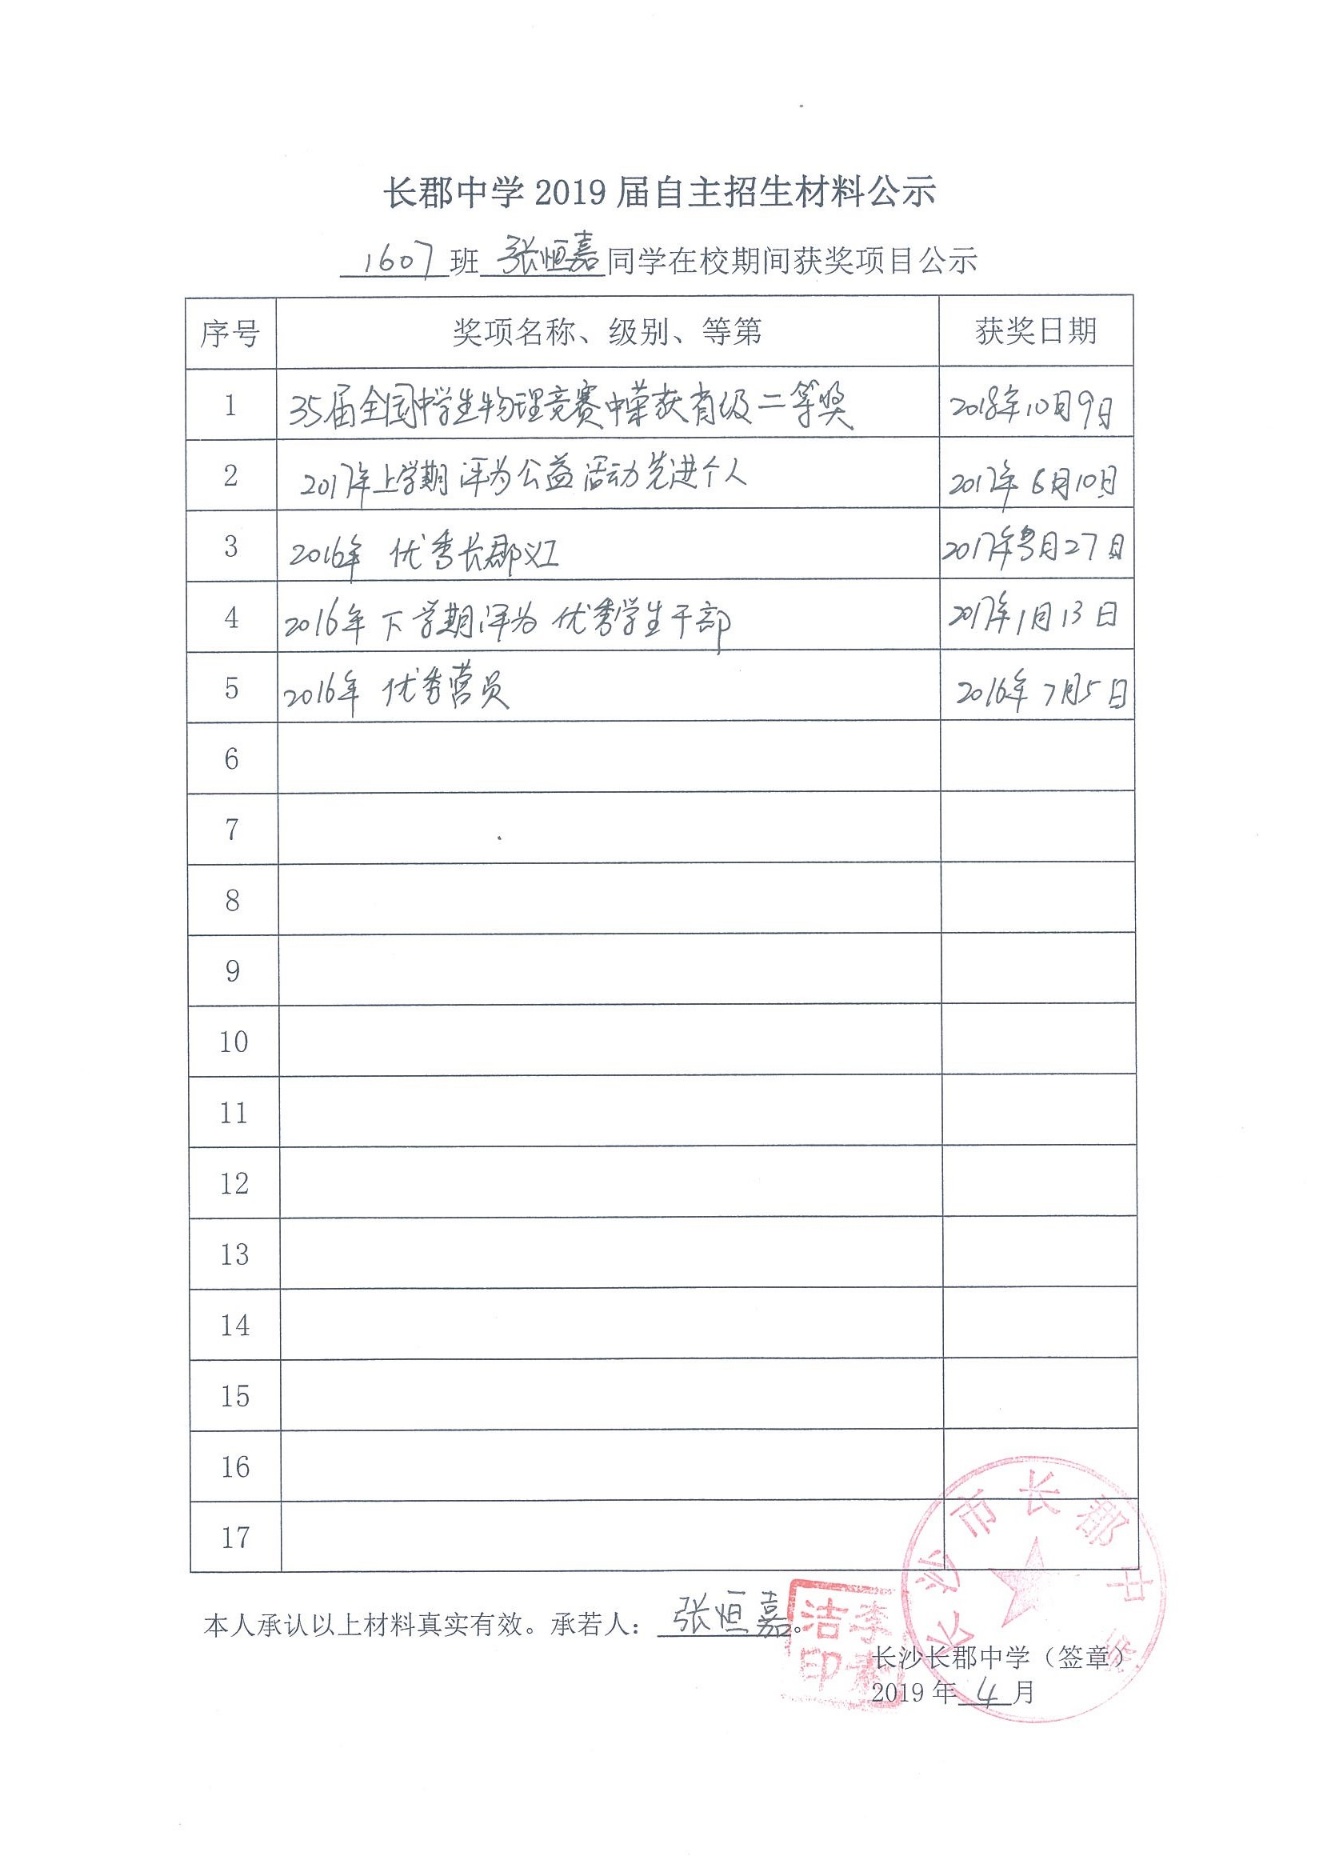 长郡中学 2019 届自主招生材料公示
1607 班 张恒嘉 同学在校期间获奖项目公示
序号 奖项名称、级别、等第 获奖日期
1 35届全国中学生物理竞赛中荣获省级二等奖 2018年10月9日
2 2017年上学期评为公益活动先进个人 2017年6月10日
3 2016年 优秀长郡义工 2017年3月27日
4 2016年下学期评为 优秀学生干部 2017年1月13日
5 2016年 优秀营员 2016年7月5日
6
7
8
9
10
11
12
13
14
15
16
17
本人承认以上材料真实有效。承若人：张恒嘉。
长沙长郡中学（签章）
2019 年 4 月
长沙市长郡中学
李素洁印